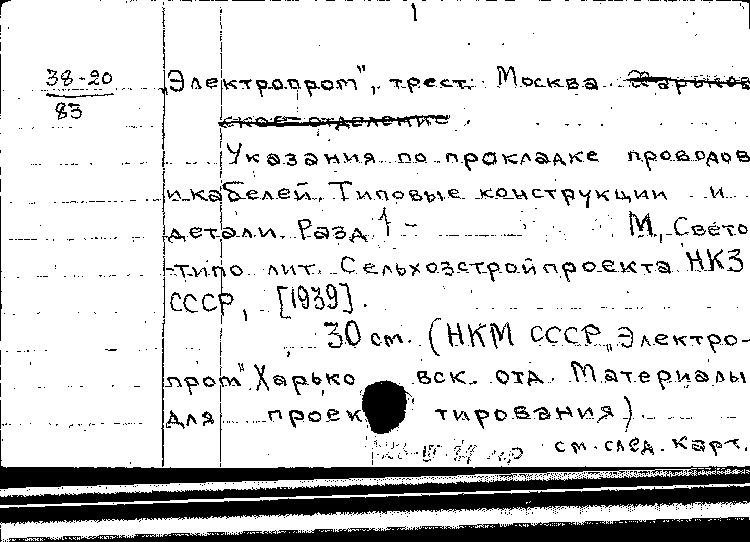 1
38-20
83
„Электропром", трест. Москва Харьков
ское отделение
Указания по прокладке проводов
и кабелей. Типовые конструкции и
детали. Разд 1 - М, Свето
-типо лит. Сельхозстройпроекта НКЗ
СССР, [1939].
30 см. (НКМ СССР „Электро-
пром" Харько вск. отд. Материалы
для проек тирования)
см. след. карт.